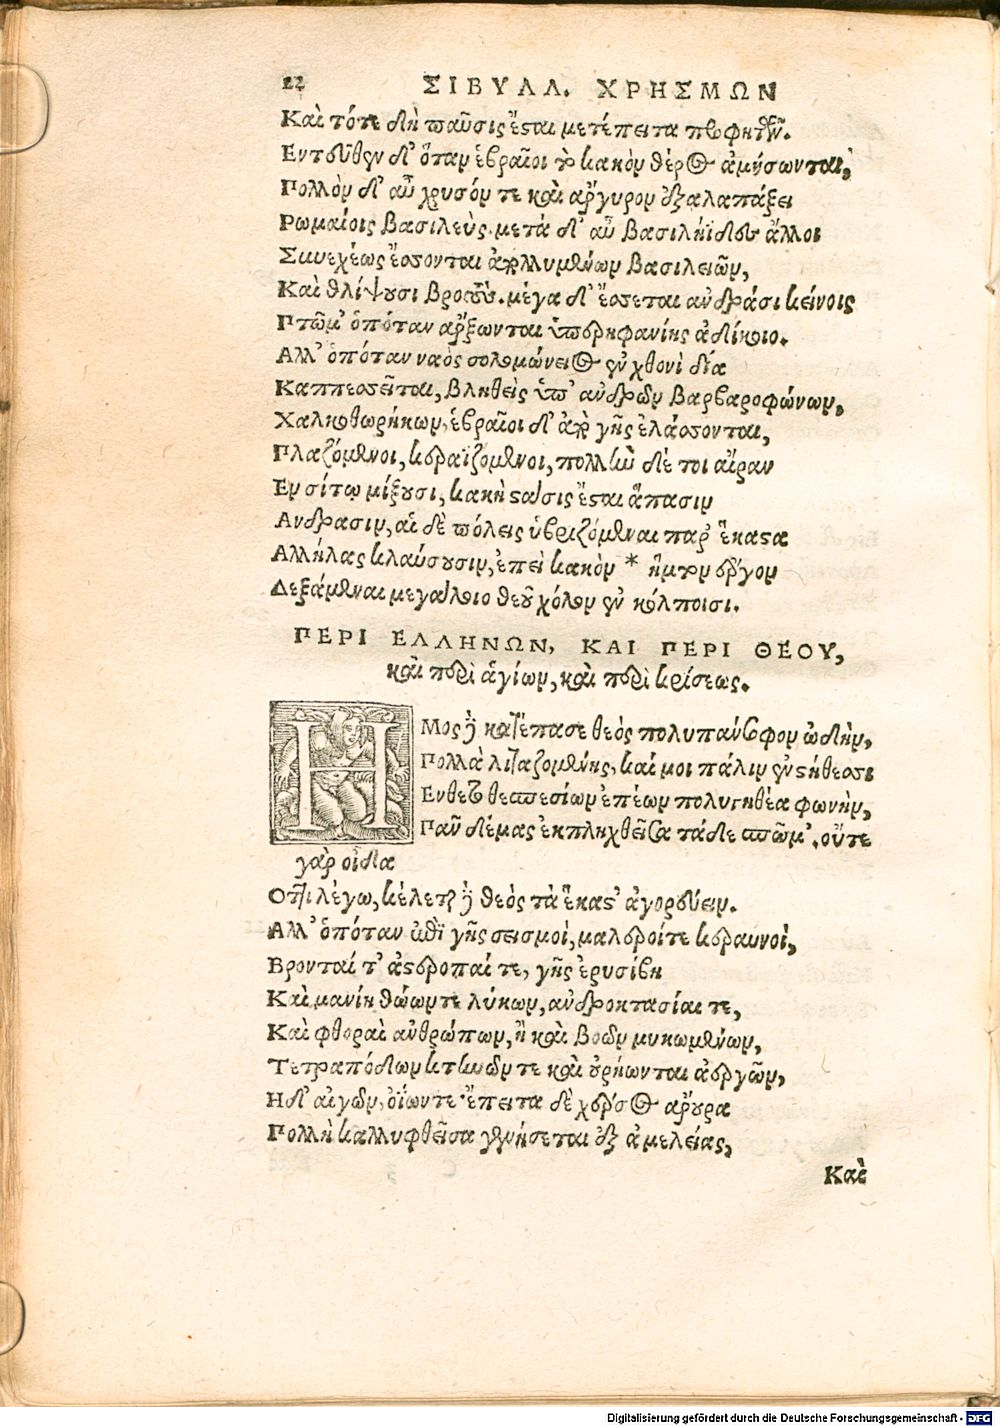 22 ΣΙΒΥΛΛ. ΧΡΗΣΜΩΝ
Καὶ τότε δὴ παῦσις ἔσται μετέπειτα προφητῶν.
Εντεῦθεν δ' ὅταν ἑβραῖοι τὸ κακὸν θέρος ἀμήσωνται,
Πολλὸν δ' αὖ χρυσόν τε καὶ ἄργυρον ἐξαλαπάξει
Ρωμαίοις βασιλεὺς. μετὰ δ' αὖ βασιληΐδες ἄλλοι
Συνεχέως ἔσονται ἀπολλυμένων βασιλειῶν,
Καὶ θλίψουσι βροτούς. μέγα δ' ἔσσεται ἀνδράσι κείνοις
Πτῶμ' ὁπόταν ἄρξωνται ὑπερηφανίης ἀδίκοιο.
Αλλ' ὁπόταν ναὸς σολομώνειος ἐν χθονὶ δία
Καππεσεῖται, βληθεὶς ὑπ' ἀνδρῶν βαρβαροφώνων,
Χαλκοθωρήκων, ἑβραῖοι δ' ἀπὸ γῆς ἐλάσονται,
Πλαζόμενοι, κεραϊζόμενοι, πολλὴν δέ τοι αἶραν
Εν σίτῳ μίξουσι, κακὴ στάσις ἔσται ἅπασιν
Ανδρασιν, αἱ δὲ πόλεις ὑβριζόμεναι παρ' ἕκαστα
Αλλήλας κλαύσουσιν, ἐπεὶ κακὸν * ἥμτον ἔργον
Δεξάμεναι μεγάλοιο θεοῦ χόλον ἐν κόλποισι.
ΠΕΡΙ ΕΛΛΗΝΩΝ, ΚΑΙ ΠΕΡΙ ΘΕΟΥ,
καὶ περὶ ἁγίων, καὶ περὶ κρίσεως.
ΗΜος δὴ κατέπαυσε θεὸς πολυπάνσοφον ᾠδὴν,
Πολλὰ λιταζομένης, καί μοι πάλιν ἐν στήθεσσι
Ενθετο θεσπεσίων ἐπέων πολυγηθέα φωνὴν,
Πᾶν δέμας ἐκπληχθεῖσα τάδε σπῶμ'. οὔτε
γὰρ οἶδα
Οττι λέγω, κέλεται δὴ θεὸς τὰ ἕκαστ' ἀγορεύειν.
Αλλ' ὁπόταν ἐπὶ γῆς σεισμοὶ, μαλεροί τε κεραυνοὶ,
Βρονταί τ' ἀστεροπαί τε, γῆς ἐρυσίβη
Καὶ μανίη θώων τε λύκων, ἀνδροκτασίαι τε,
Καὶ φθοραὶ ἀνθρώπων, ἢ καὶ βοῶν μυκωμένων,
Τετραπόδων κτηνῶν τε καὶ οὐρήων ται ἀεργῶν,
Η δ' αἰγῶν, ὀΐων τε. ἔπειτα δὲ χέρσος ἄρουρα
Πολλὴ καλλυφθεῖσα γενήσεται ἐξ ἀμελείας,
Καὶ
Digitalisierung gefördert durch die Deutsche Forschungsgemeinschaft - DFG